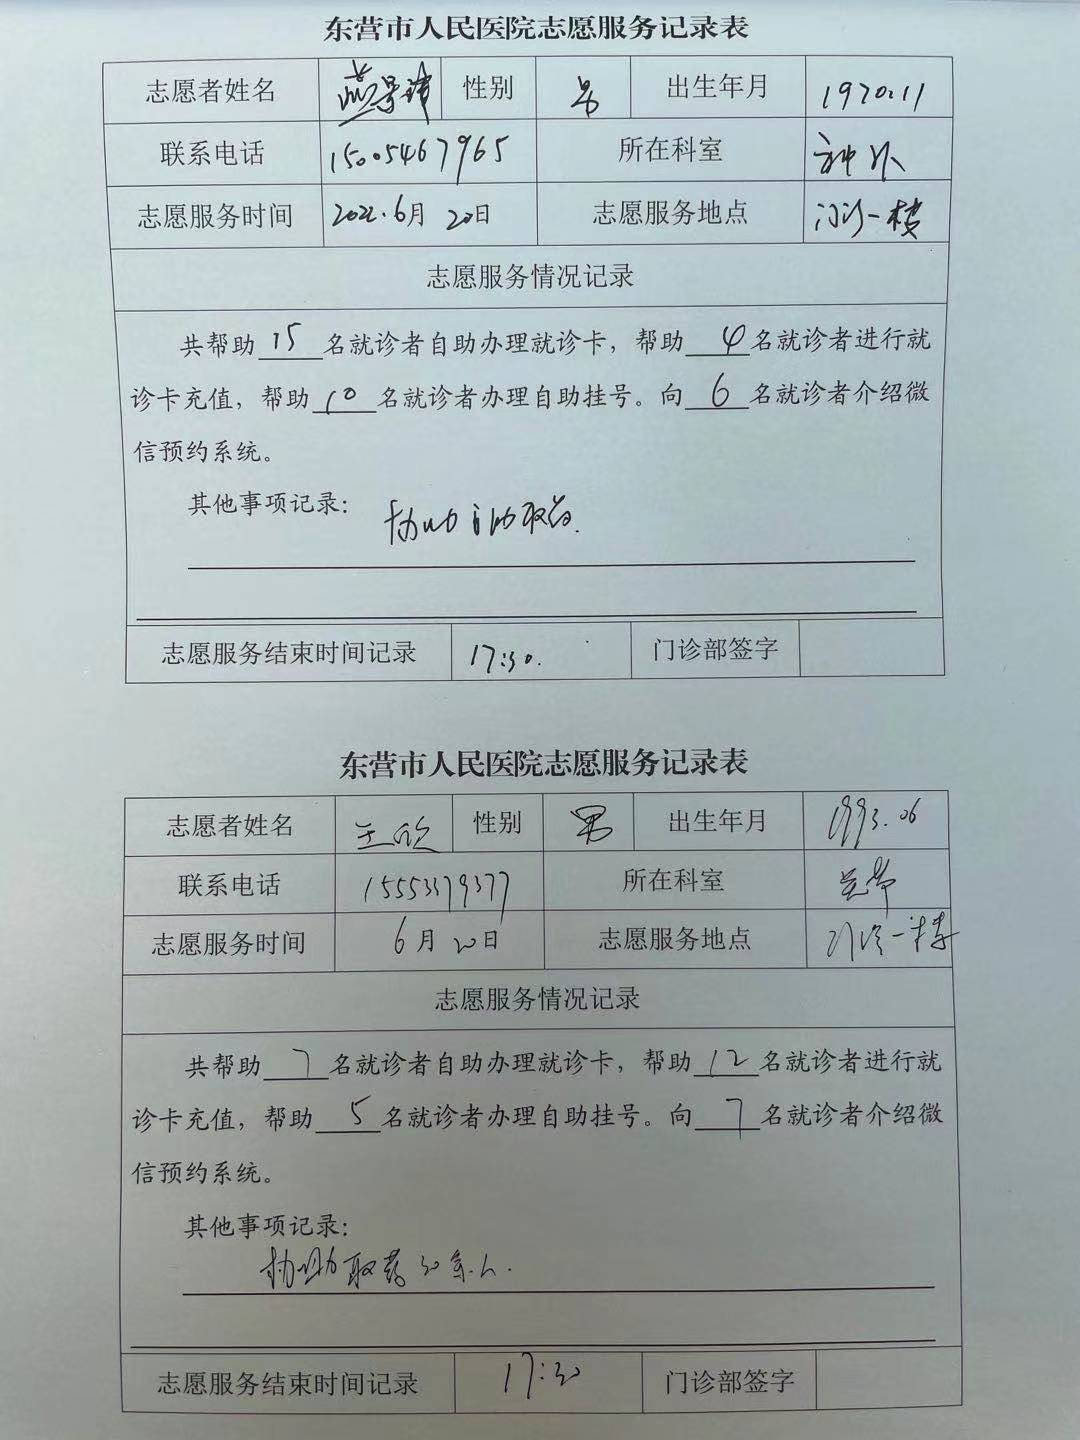 东营市人民医院志愿服务记录表
志愿者姓名 燕景 性别 男 出生年月 1970.11
联系电话 15005467965 所在科室 神外
志愿服务时间 2022.6月 20日 志愿服务地点 门诊一楼
志愿服务情况记录
共帮助 15 名就诊者自助办理就诊卡，帮助 4 名就诊者进行就
诊卡充值，帮助 10 名就诊者办理自助挂号。向 6 名就诊者介绍微
信预约系统。
其他事项记录：
协助自助取药.
志愿服务结束时间记录 17:30. 门诊部签字
东营市人民医院志愿服务记录表
志愿者姓名 王欣 性别 男 出生年月 1993.06
联系电话 15553379377 所在科室
志愿服务时间 6月 20日 志愿服务地点 门诊一楼
志愿服务情况记录
共帮助 7 名就诊者自助办理就诊卡，帮助 12 名就诊者进行就
诊卡充值，帮助 5 名就诊者办理自助挂号。向 7 名就诊者介绍微
信预约系统。
其他事项记录：
协助取药30余人.
志愿服务结束时间记录 17:30 门诊部签字